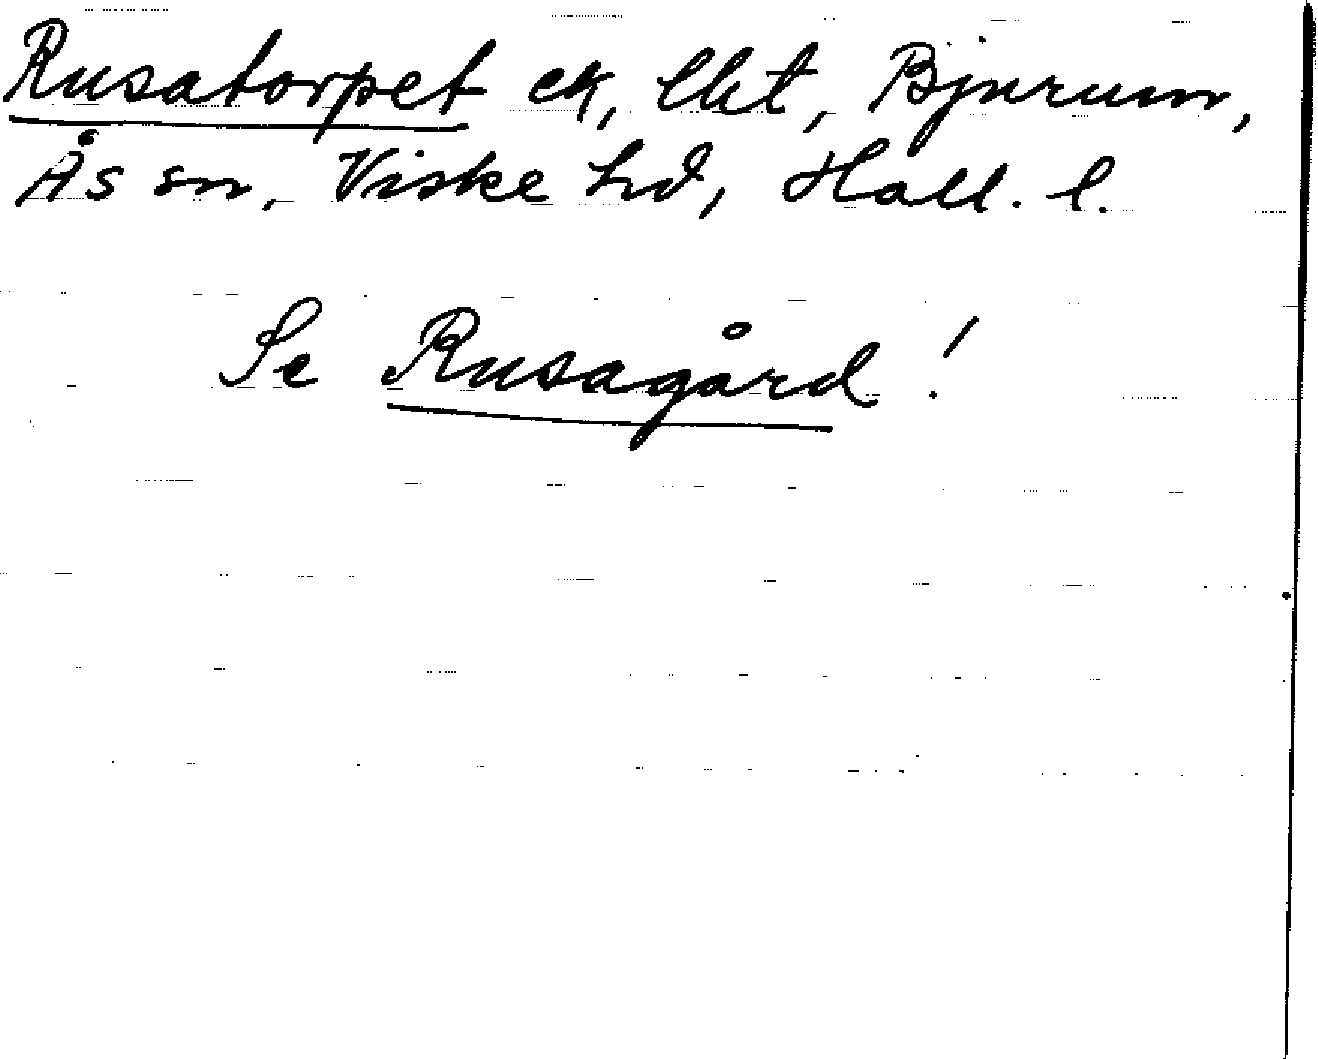 Rusatorpet ek, lht, Bjurum,
Ås sn, Viske hd, Hall. l.
Se Rusagård!